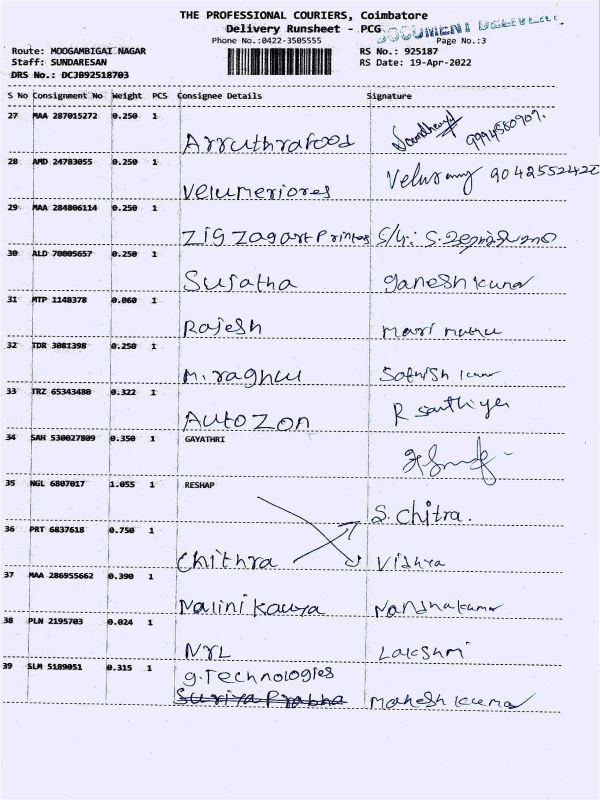 THE PROFESSIONAL COURIERS, Coimbatore
Delivery Runsheet - PCG
DOCUMENT DELIVERY
Phone No.:0422-3505555
Page No.:3
Route: MOOGAMBIGAI NAGAR
RS No.: 925187
Staff: SUNDARESAN
RS Date: 19-Apr-2022
DRS No.: DCJB92518703
S No Consignment No Weight PCS Consignee Details Signature
27 MAA 287015272 0.250 1
Arruthrafood 9994580909.
28 AMD 24783055 0.250 1
Velumeriores Velusamy
29 MAA 284806114 0.250 1
ZigZagart Printers S/y:
30 ALD 70005657 0.250 1
Sujatha Ganesh kumar
31 MTP 1148378 0.060 1
Rajesh Mari muthu
32 TDR 3081398 0.250 1
M.raghu Sathish kumar
33 TRZ 65343480 0.322 1
AutoZon R santhiya
34 SAH 530027809 0.350 1 GAYATHRI
35 NGL 6807017 1.055 1 RESHAP
S. Chitra.
36 PRT 6837618 0.750 1
Chithra Vidhya
37 MAA 286955662 0.390 1
Nalini kavya Nandhakumar
38 PLN 2195703 0.024 1
NRL Lakshmi
39 SLM 5189051 0.315 1
g.Technologies
Suriya Prabha Mahesh kumar